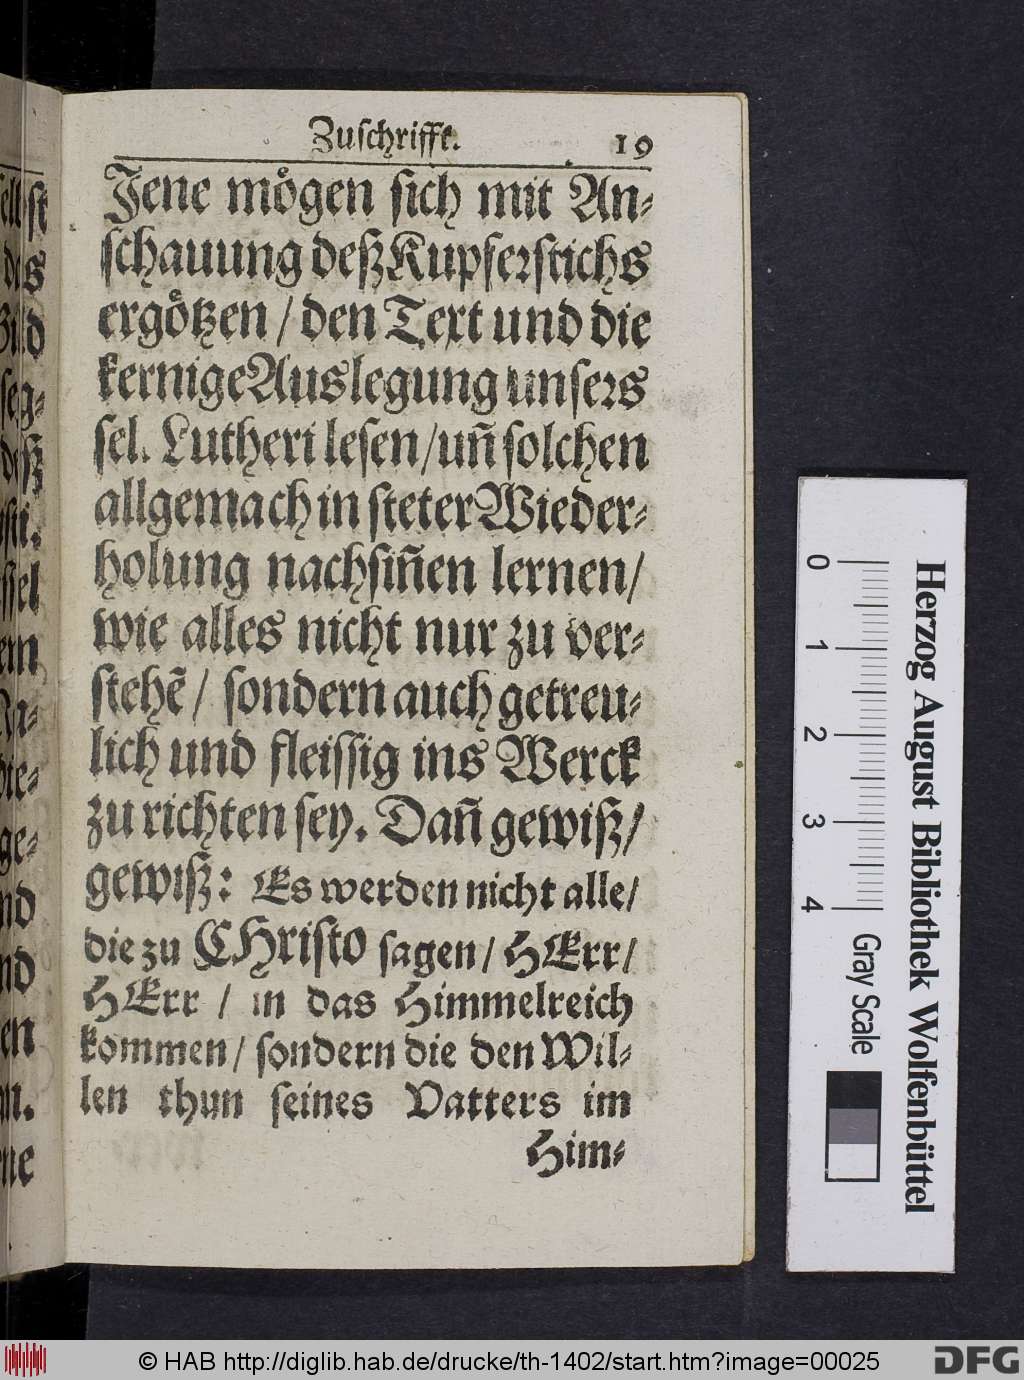 Zuschrifft. 19
Jene mögen sich mit An-
schauung deß Kupferstichs
ergötzen / den Text und die
kernige Auslegung unsers
sel. Lutheri lesen / uñ solchen
allgemach in steter Wieder-
holung nachsiñen lernen /
wie alles nicht nur zu ver-
stehẽ / sondern auch getreu-
lich und fleissig ins Werck
zu richten sey. Dañ gewiß /
gewiß: Es werden nicht alle /
die zu CHristo sagen / HErr /
HErr / in das Himmelreich
kommen / sondern die den Wil-
len thun seines Vatters im
Him-
Herzog August Bibliothek Wolfenbüttel
0 1 2 3 4 Gray Scale
© HAB http://diglib.hab.de/drucke/th-1402/start.htm?image=00025
DFG